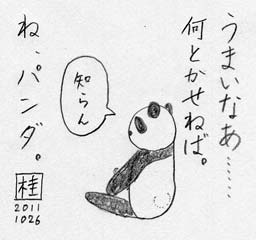 うまいなあ……
何とかせねば。
知らん
ね、パンダ。
桂
2011
1026